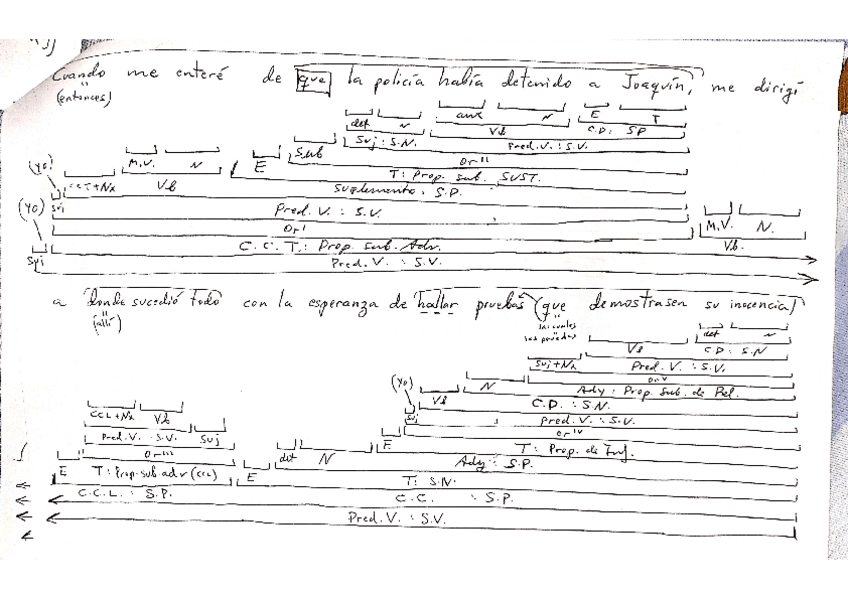 Cuando me enteré de que la policía había detenido a Joaquín, me dirigí
(entonces)
det N aux N E T
Sub Suj: S.N. Vb C.D: SP
(yo) M.V. N E Pred. V.: S.V.
Or II
CCT+Nx Vb T: Prop. sub. SUST.
Suplemento: S.P.
(yo) Suj Pred. V.: S.V. M.V. N.
Or I
Suj C.C.T.: Prop. sub. Adv. Vb.
Pred. V.: S.V.
a donde sucedió todo con la esperanza de hallar pruebas (que demostrasen su inocencia)
(allí) las cuales
las pruebas
det N
Vb C.D: S.N
Suj+Nx Pred. V.: S.V.
Or V
(yo) Vb N Ady: Prop. Sub. de Rel.
C.D.: S.N.
CCL+Nx Vb Suj Pred. V.: S.V.
Pred. V.: S.V. Suj Or IV
Or III det N E T: Prop. de Inf.
Ady: S.P.
E T: Prop. sub adv (CCL) E T: S.N.
C.C.L.: S.P. C.C. : S.P.
Pred. V.: S.V.